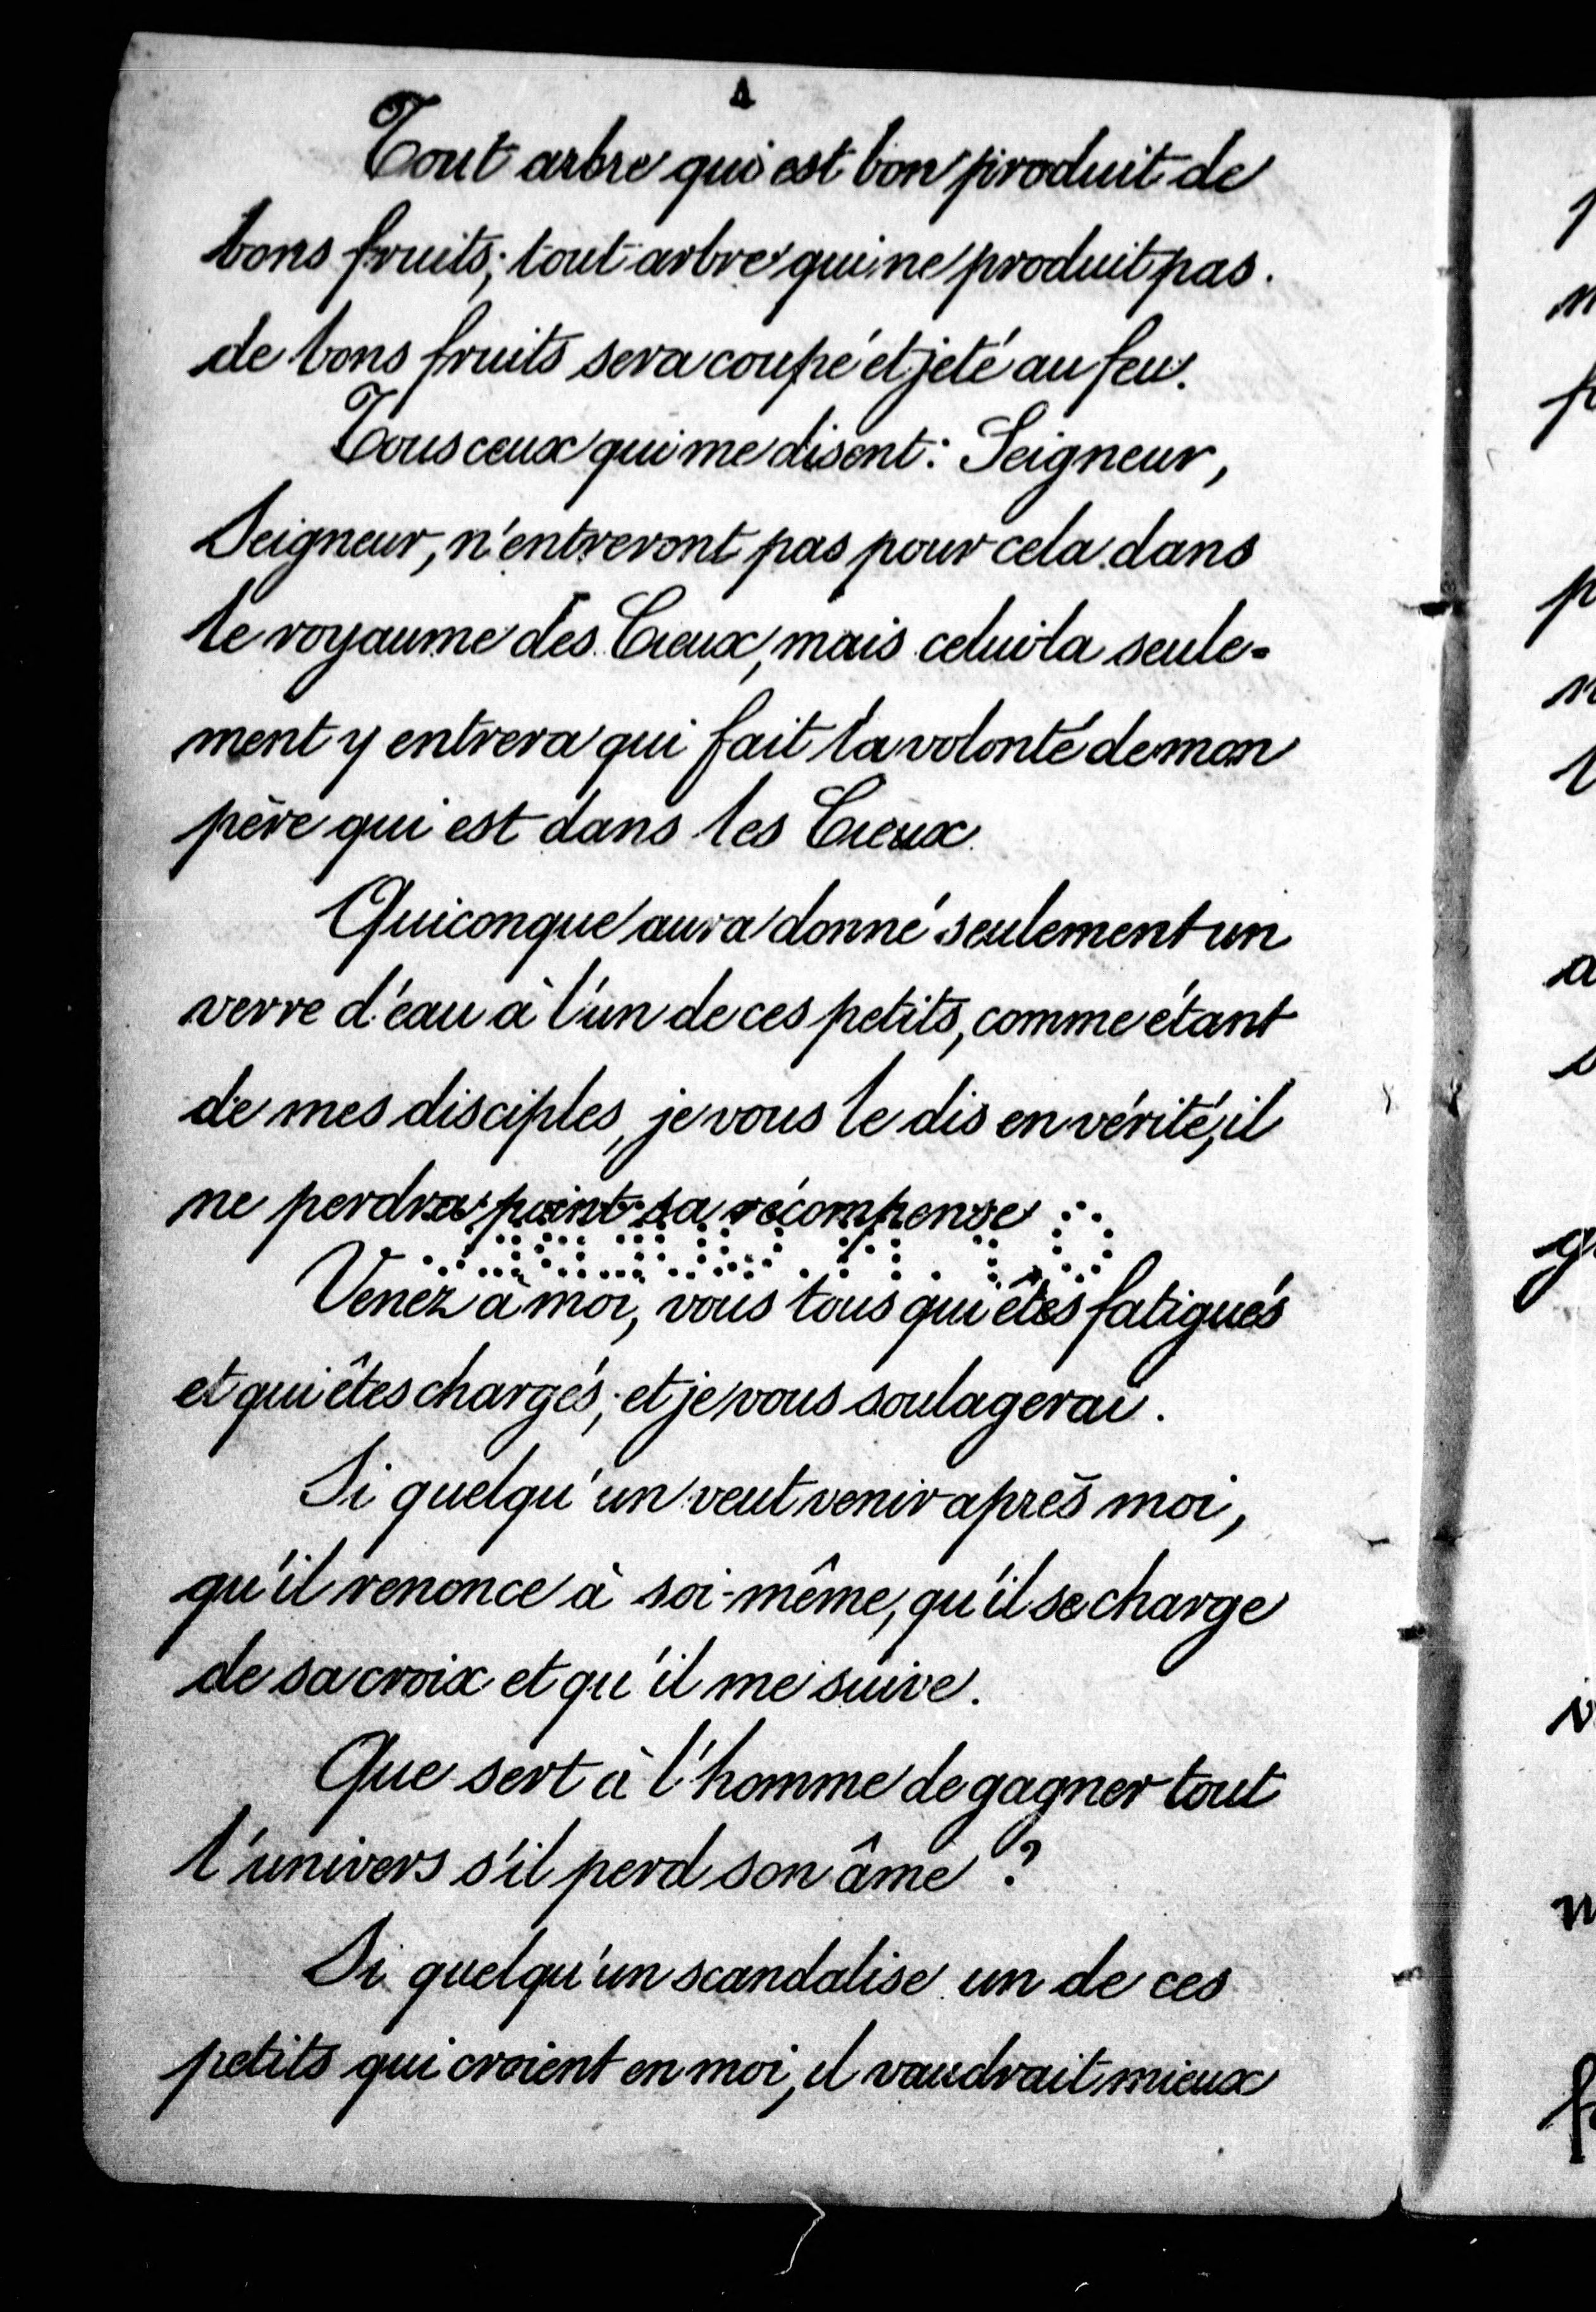 Tout arbre qui est bon produit de
bons fruits; tout arbre qui ne produit pas
de bons fruits sera coupé et jeté au feu.
Tous ceux qui me disent: Seigneur,
Seigneur, n'entreront pas pour cela dans
le royaume des Cieux, mais celui la seule-
ment y entrera qui fait la volonté de mon
père qui est dans les Cieux.
Quiconque aura donné seulement un
verre d'eau à l'un de ces petits, comme étant
de mes disciples, je vous le dis en vérité, il
ne perdra point sa récompense
Venez à moi, vous tous qui êtes fatigués
et qui êtes chargés; et je vous soulagerai.
Si quelqu'un veut venir après moi,
qu'il renonce à soi-même, qu'il se charge
de sa croix et qu'il me suive.
Que sert à l'homme de gagner tout
l'univers s'il perd son âme ?
Si quelqu'un scandalise un de ces
petits qui croient en moi, il vaudrait mieux